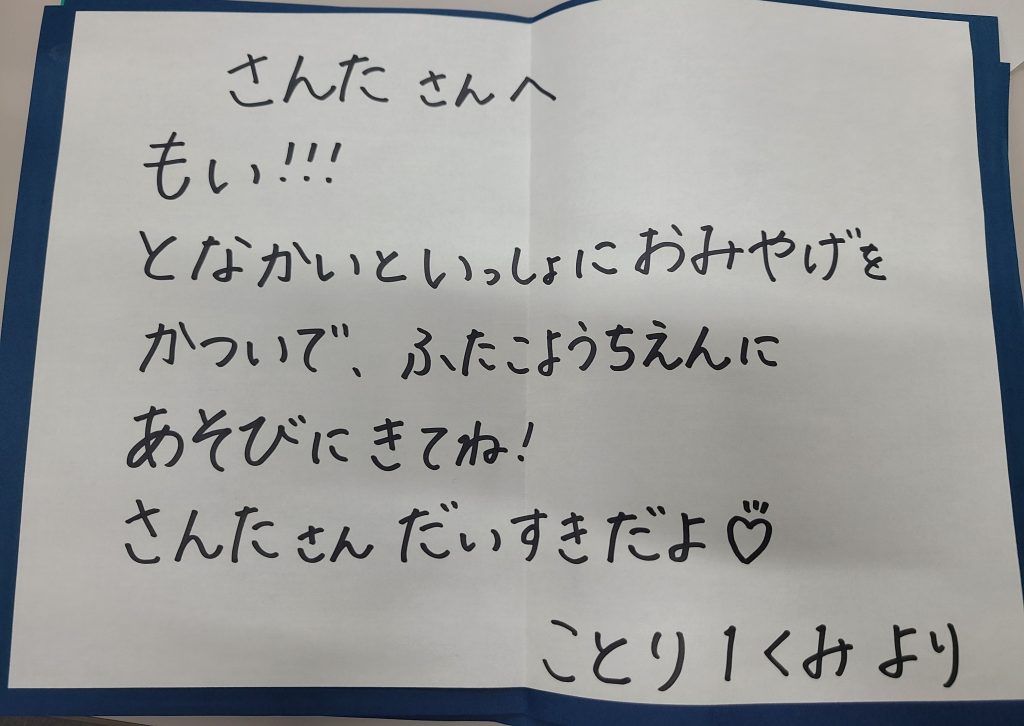 さんたさんへ
もい!!!
となかいといっしょにおみやげを
かついで、ふたこようちえんに
あそびにきてね!
さんたさんだいすきだよ♡
ことり1くみより